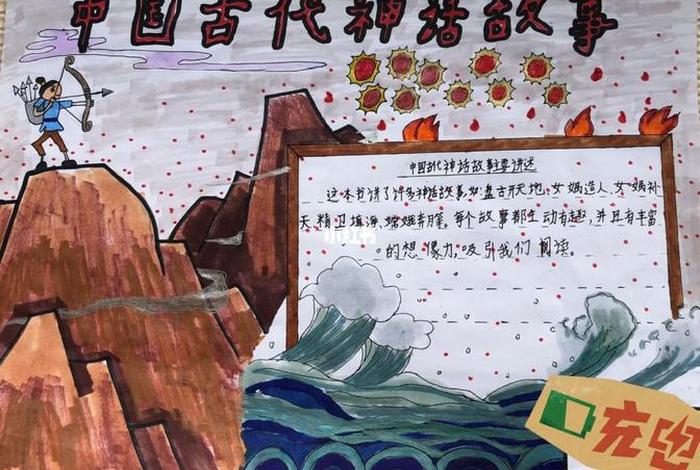 中国古代神话故事
中国古代神话故事主要讲述
这本书讲了许多神话故事,如盘古开天地、女娲造人、女娲补
天、精卫填海、嫦娥奔月等。每个故事都生动有趣,并且有丰富
的想像力,吸引我们阅读。
小红书